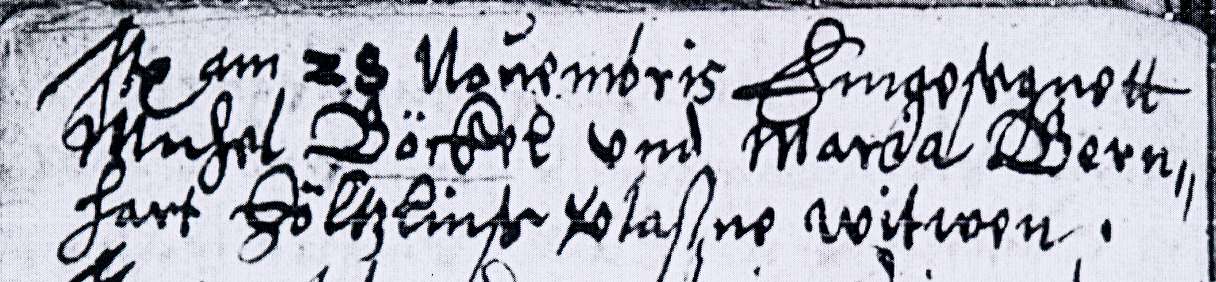 am 28 Nouembris Eingesegnett
Michel Börkel vnd Maria Bern⸗
hart Höltzlins verlaßne witwen.